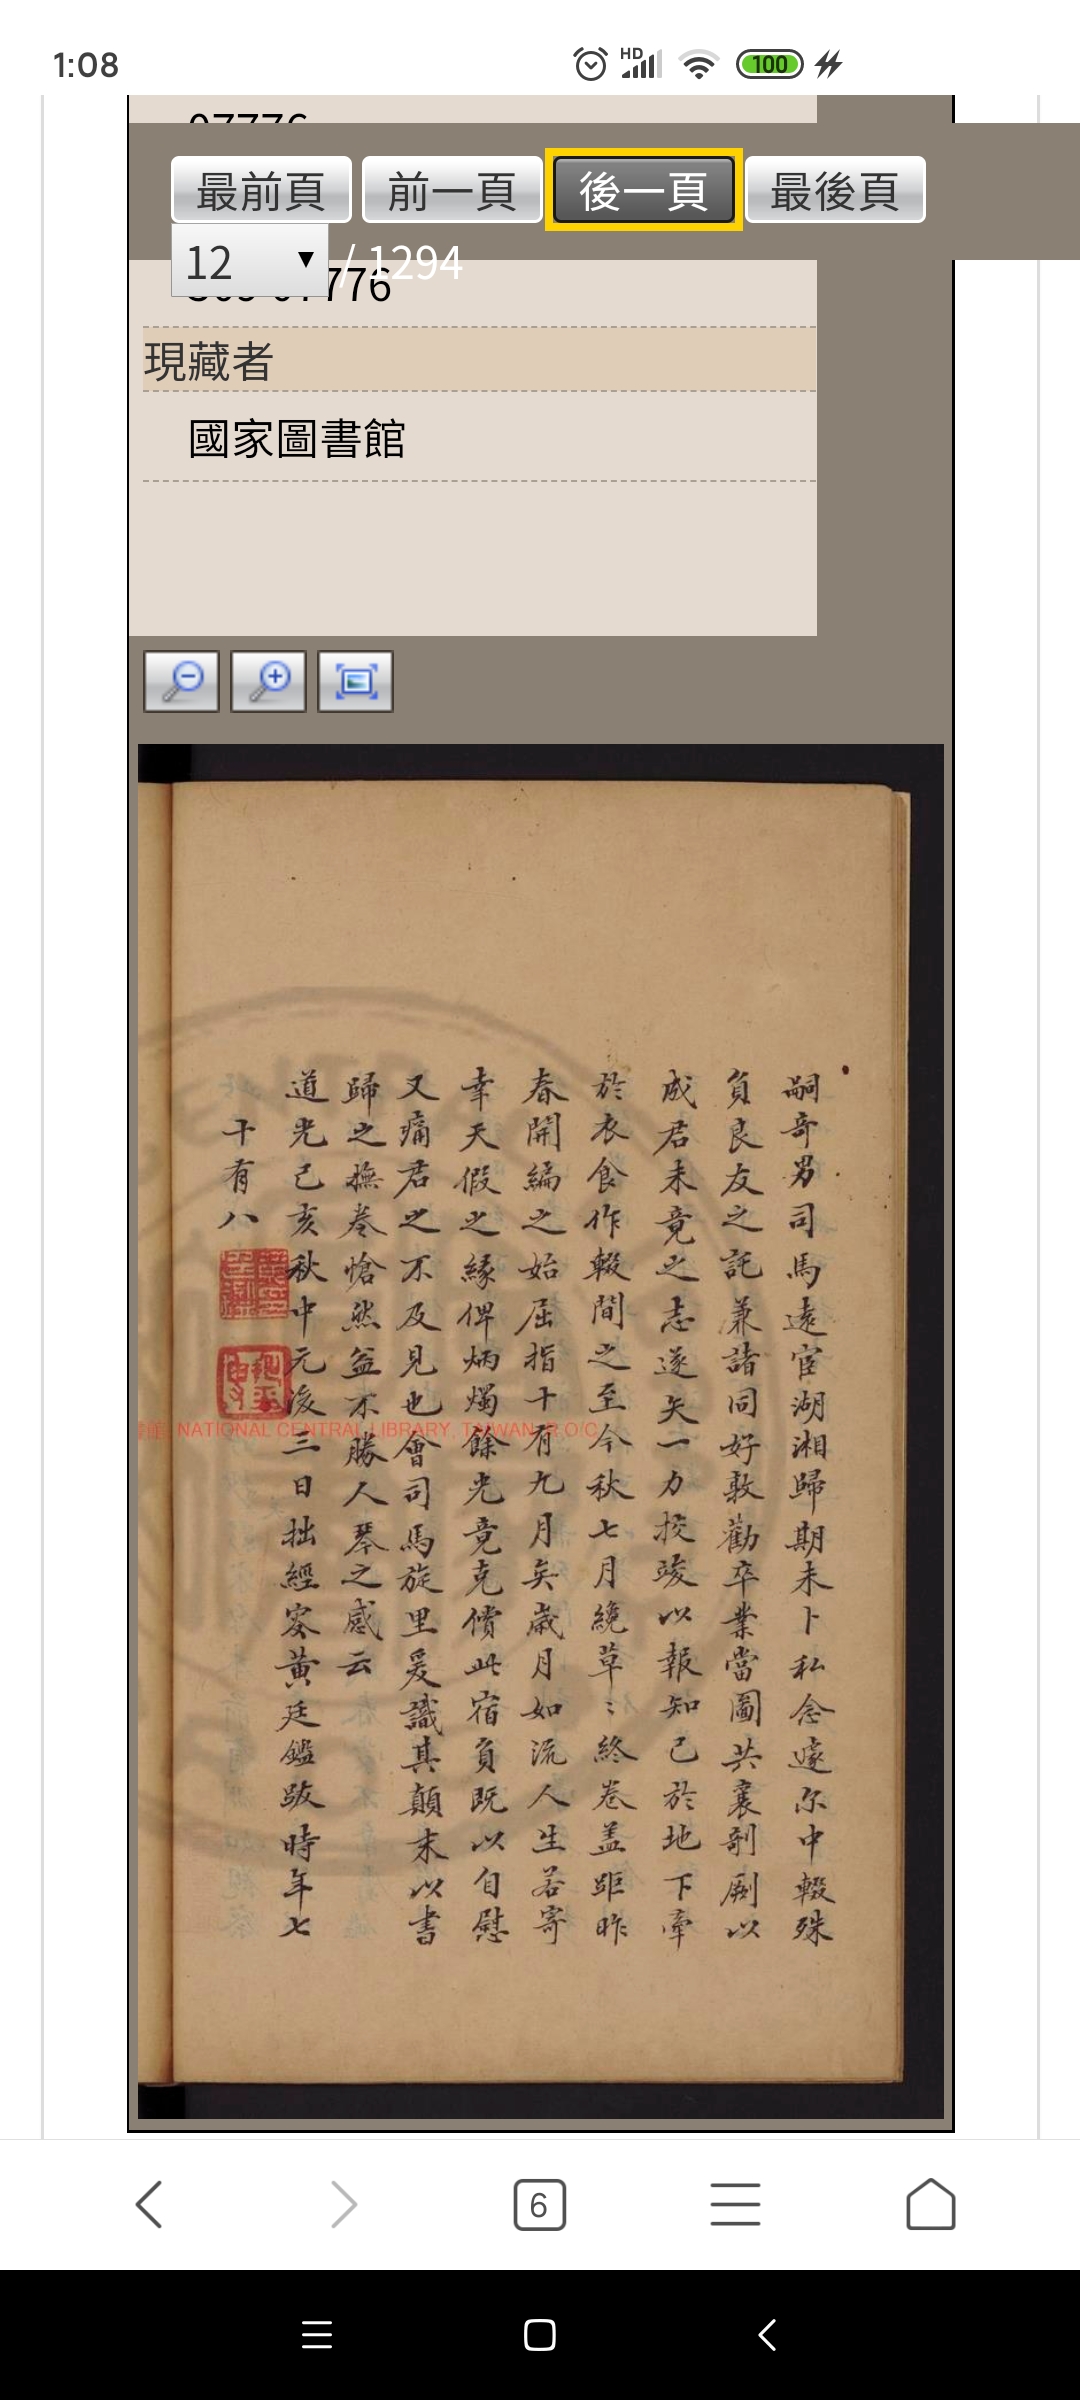 1:08
HD
100
07776
最前頁 前一頁 後一頁 最後頁
12 / 1294
07776
現藏者
國家圖書館
嗣奇男司馬遠宦湖湘歸期未卜私念遽尔中輟殊
負良友之託兼諸同好敦勸卒業當圖共襄剞劂以
成君未竟之志遂矢一力挍竣以報知己於地下牽
於衣食作輟間之至今秋七月纔草〻終卷盖距昨
春開編之始屈指十有九月矣歲月如流人生若寄
幸天假之緣俾炳燭餘光竟克償此宿負既以自慰
又痛君之不及見也會司馬旋里爰識其顛末以書
歸之撫卷愴然益不勝人琴之感云
道光己亥秋中元後三日拙經叟黄廷鑑跋時年七
十有八
NATIONAL CENTRAL LIBRARY, TAIWAN, R.O.C
6